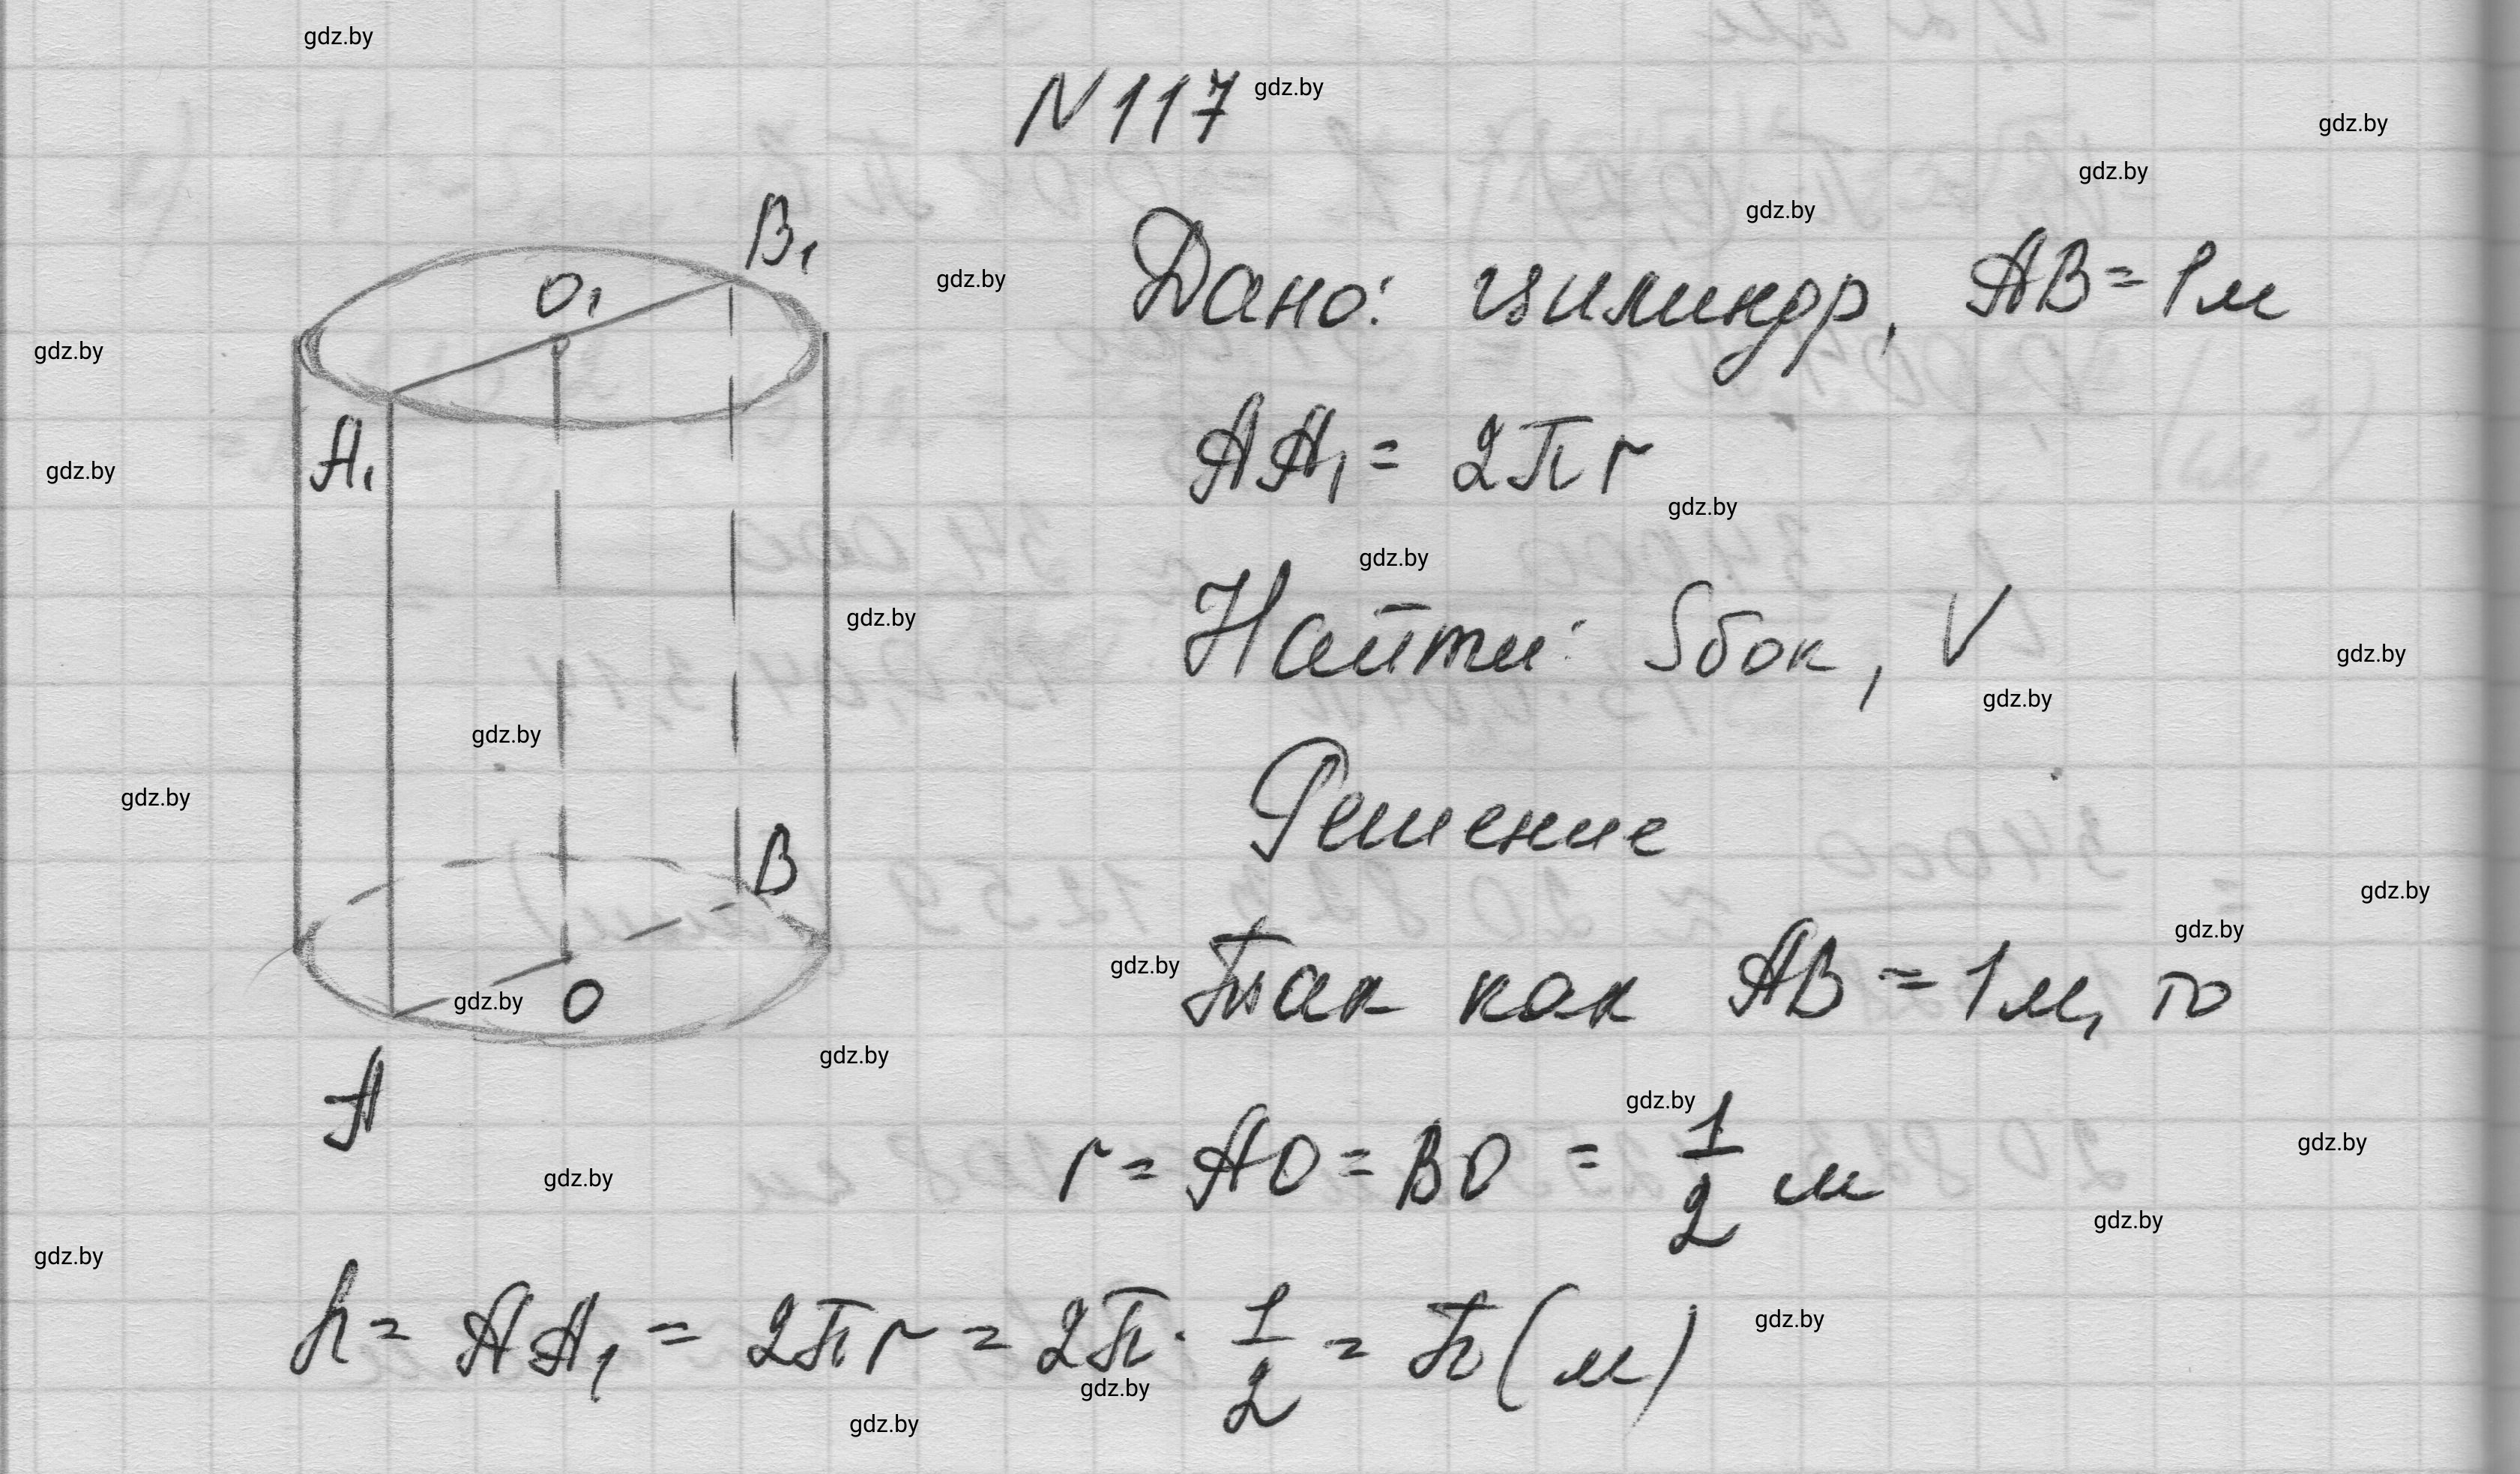 gdz.by
N 117 gdz.by
gdz.by
gdz.by
gdz.by
B₁
gdz.by
O₁
Дано: цилиндр, AB = 1 м
gdz.by
A₁
AA₁ = 2πr
gdz.by
gdz.by
gdz.by
gdz.by
Найти: Sбок, V
gdz.by
gdz.by
gdz.by
gdz.by
Решение
B
gdz.by
gdz.by
gdz.by
Так как AB = 1 м, то
gdz.by
O
gdz.by
A
gdz.by
r = AO = BO = 1/2 м
gdz.by
gdz.by
gdz.by
gdz.by
h = AA₁ = 2πr = 2π · 1/2 = π (м)
gdz.by
gdz.by
gdz.by